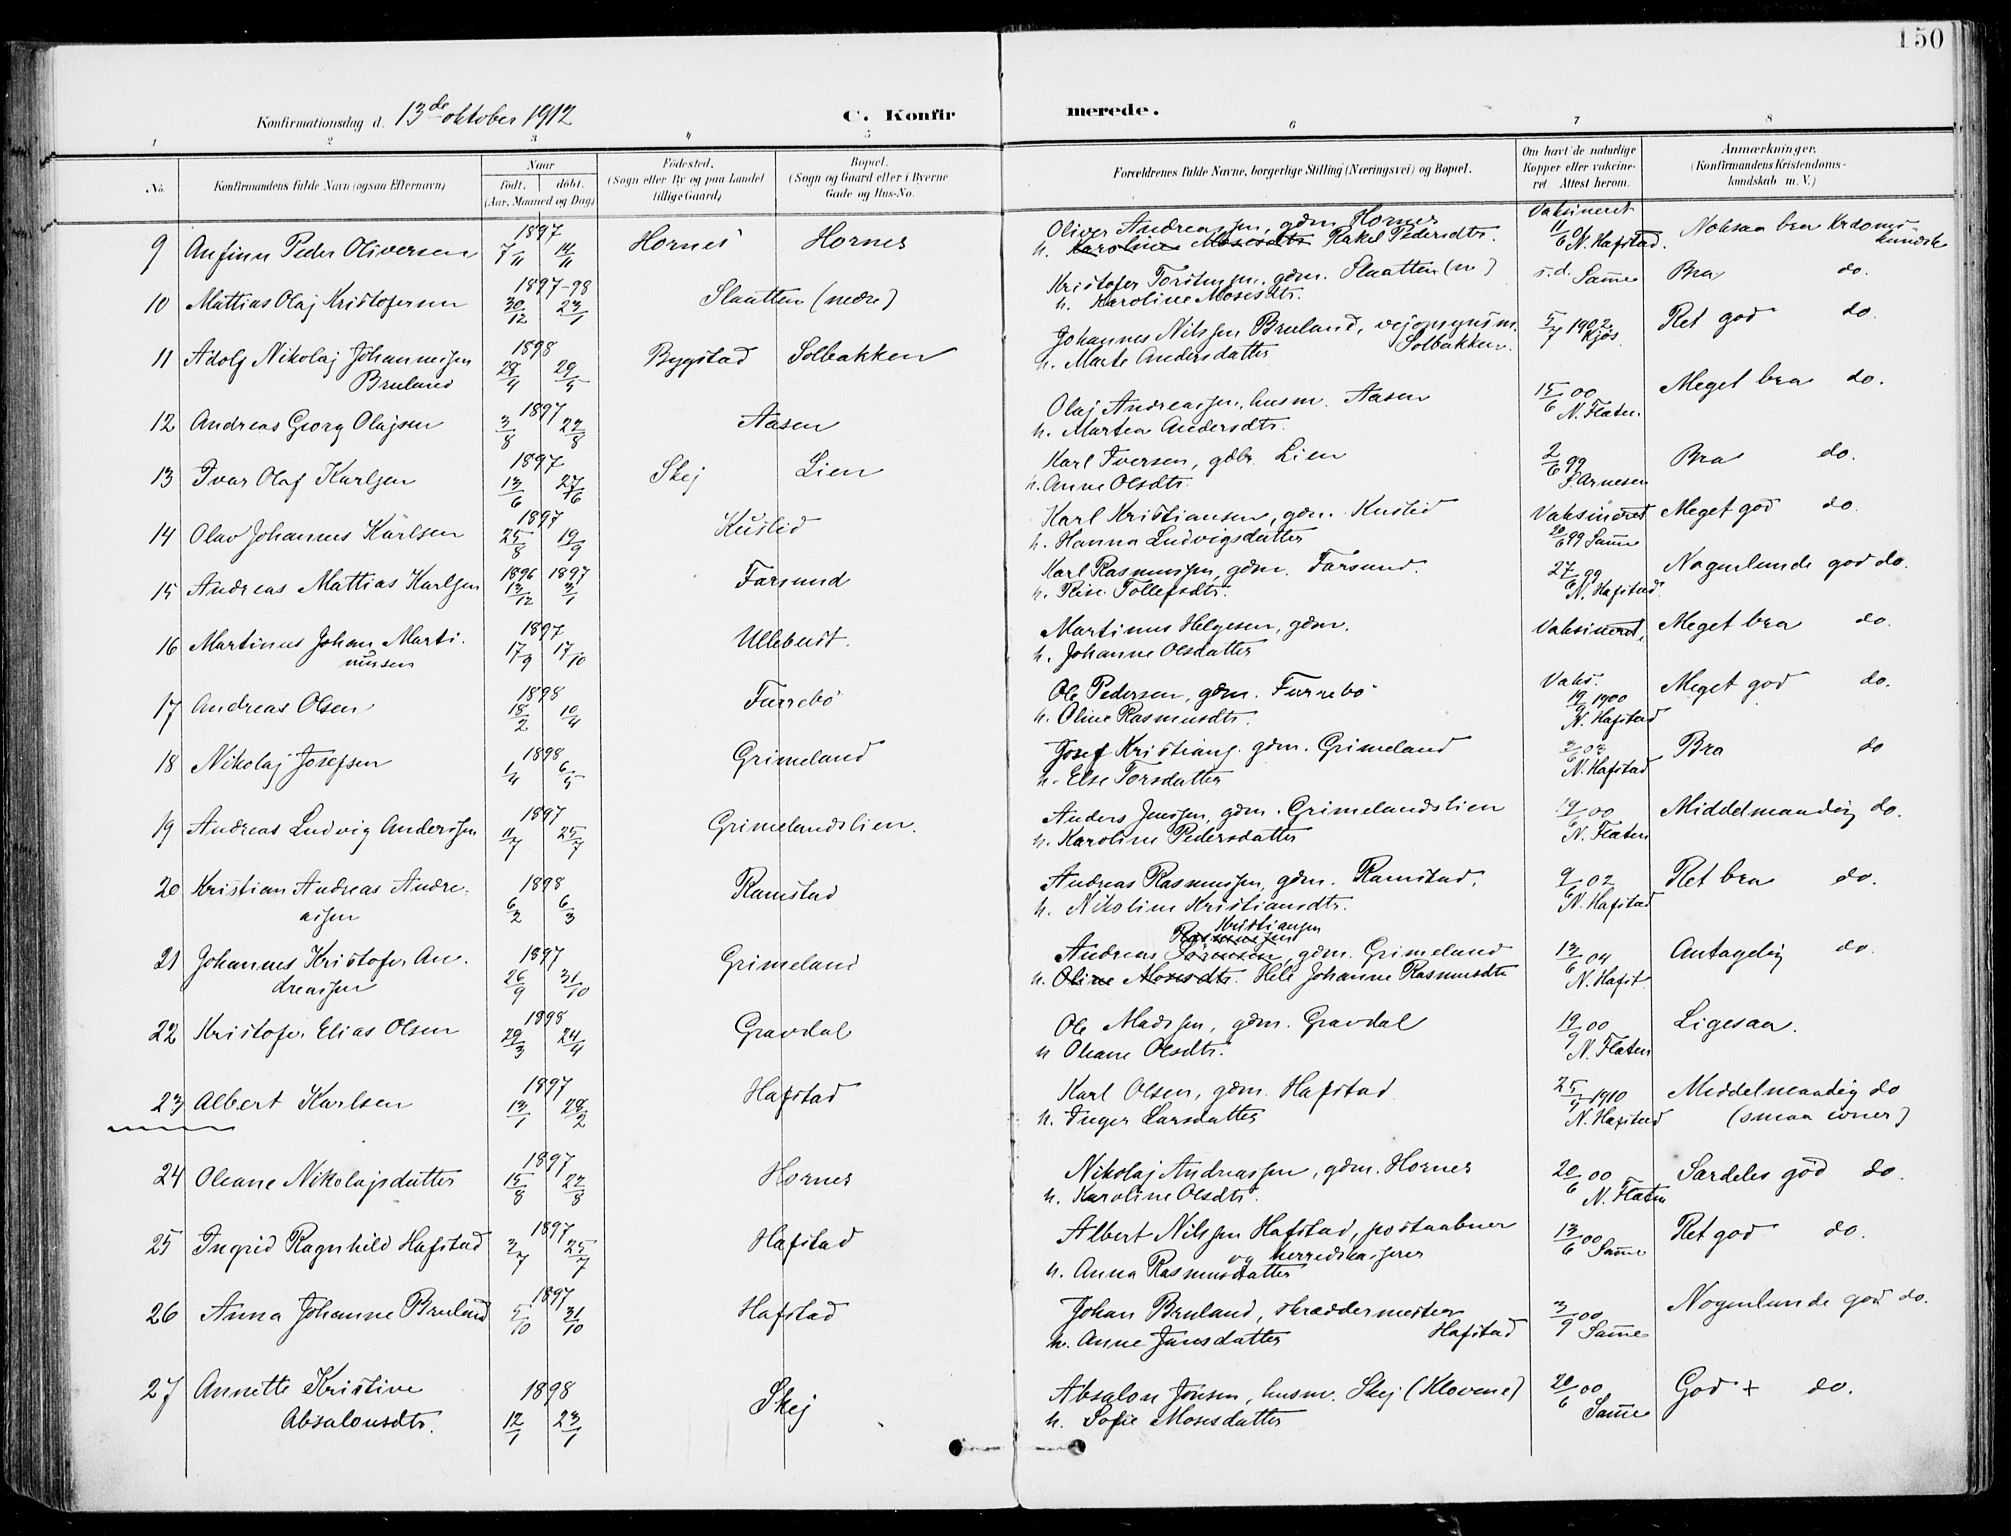 150
Konfirmationsdag d. 13de oktober 1912
C. Konfirmerede.
1 2 3 4 5 6 7 8
No. Konfirmandens fulde Navn (ogsaa Efternavn) Naar födt. döbt. (Aar, Maaned og Dag) Födested. (Sogn eller By og paa Landet tillige Gaard) Bopæl. (Sogn og Gaard eller i Byerne Gade og Hus-No. Forældrenes fulde Navne, borgerlige Stilling (Næringsvei) og Bopæl. Om havt de naturlige Kopper eller vakcineret. Attest herom. Anmærkninger. (Konfirmandens Kristendomskundskab m. V.)
9 Anfinn Peder Oliversen 1897 7/11 14/11 Hornes Hornes Oliver Andreassen, gdm. Hornes Vaksineret 11/6 01 N. Hafstad. Noksaa bra krdoms-
h. Karoline Mosesdtr. Rakel Pedersdtr. kundsk
10 Mattias Olaj Kristofersen 1897-98 30/12 23/1 Slaatten (nedre) Kristofer Torstensen, gdm. Slaatten (n.) s.d. Samme Bra do.
h. Karoline Mosesdtr.
11 Adolf Nikolaj Johannessen 1898 28/4 29/5 Bygstad Solbakken Johannes Nilssen Bruland, vejopsynsm. 5/7 1902 Kjøs. Ret god do.
Bruland h. Marte Andersdatter Solbakken.
12 Andreas Georg Olajsen 1897 3/8 22/8 Aasen Olaj Andreassen, husm. Aasen 15/6 00 N. Flaten Meget bra do.
h. Martea Andersdtr.
13 Ivar Olaf Karlsen 1897 13/6 27/6 Skej Lien Karl Iversen, gdbr. Lien 2/6 99 J. Arnesen Bra do.
h. Anne Olsdtr.
14 Olav Johannes Karlsen 1897 25/8 19/9 Kuslid Karl Kristiansen, gdm. Kuslid Vaksineret Meget god do.
h. Hanna Ludvigsdatter 20/6 99 Samme
15 Andreas Mattias Karlsen 1896 1897 13/12 3/1 Farsund Karl Rasmussen, gdm. Farsund. 27/6 99 N. Hafstad. Nogenlunde god do.
h. Tollefsdtr.
16 Martinus Johan Marti- 1897 17/9 17/10 Ullebust. Martinus Helgesen, gdm. Vaksineret. Meget bra do.
nussen h. Johanne Olsdatter
17 Andreas Olsen 1898 18/2 10/4 Furrebö Ole Pedersen, gdm. Furrebö Vaks. 19/9 1900 N. Hafstad Meget god do.
h. Oline Rasmusdtr.
18 Nikolaj Josefsen 1898 1/4 6/5 Grimeland Josef Kristians. gdm. Grimeland 2/6 02 N. Hafstad Bra do
h. Else Torsdatter
19 Andreas Ludvig Anderssen 1897 11/7 25/7 Grimelandslien. Anders Jenssen, gdm. Grimelandslien 19/6 00 N. Flaten Middelmaadig do.
h. Karoline Pedersdatter
20 Kristian Andreas Andre- 1898 6/2 6/3 Ramstad Andreas Rasmussen, gdm. Ramstad. 9/6 02 N. Hafstad Ret bra do.
assen h. Nikoline Kristiansdtr.
Kristiansen
Rasmussen
21 Johannes Kristofer An- 1897 26/9 31/10 Grimeland Andreas Sörensen, gdm. Grimeland 13/6 04 N. Hafst. Antagelig do.
dreassen h. Oline Mosesdtr. Hele Johanne Rasmusdtr
22 Kristofer Elias Olsen 1898 29/3 24/4 Gravdal Ole Madssen, gdm. Gravdal 19/9 00 N. Flaten Ligesaa.
h Oleane Olsdtr.
23 Albert Karlsen 1897 13/1 28/2 Hafstad Karl Olsen, gdm. Hafstad 25/9 1910 N. Hafstad Middelmaadig do
h. Inger Larsdatter (smaa evner)
24 Oleane Nikolajsdatter 1897 15/8 22/8 Hornes Nikolaj Andreassen, gdm. Hornes 20/6 00 N. Flaten Særdeles god do.
h. Karoline Olsdtr.
25 Ingrid Ragnhild Hafstad 1897 3/7 25/7 Hafstad Albert Nilssen Hafstad, postaabner 13/6 00 Samme Ret god do.
og herredskasserer
h. Anna Rasmusdatter
26 Anna Johanne Bruland 1897 5/10 31/10 Hafstad Johan Bruland, skræddermester 3/9 00 Samme Nogenlunde god do.
h. Anne Jensdatter Hafstad
27 Annette Kristine 1898 12/1 23/1 Skej Absalon Jonsen, husm. Skej (Klovene) 20/6 00 Samme God + do.
Absalonsdtr. h. Sofie Mosesdatter